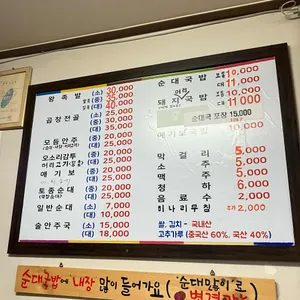 왕족발 (소) 30,000
(중) 35,000
(대) 40,000
곱창전골 (중) 25,000
(대) 35,000
모듬안주 (중) 20,000
(대) 25,000
오소리감투 (중) 20,000
머리고기 (대) 25,000
애기보 (중) 20,000
(대) 25,000
토종순대 (중) 20,000
(대) 25,000
일반순대 (소) 7,000
(대) 10,000
술안주국 (소) 15,000
(대) 18,000
순대국밥 보통 10,000
대 11,000
돼지국밥 10,000
대 11,000
순대국 포장 15,000
10,000
막걸리 5,000
소주 5,000
맥주 5,000
청하 6,000
미나리무침 추가 2,000
쌀, 김치 - 국내산
고추가루 (중국산 60%, 국산 40%)
순대국밥에 내장 많이 들어가요 (순대많이로
변경